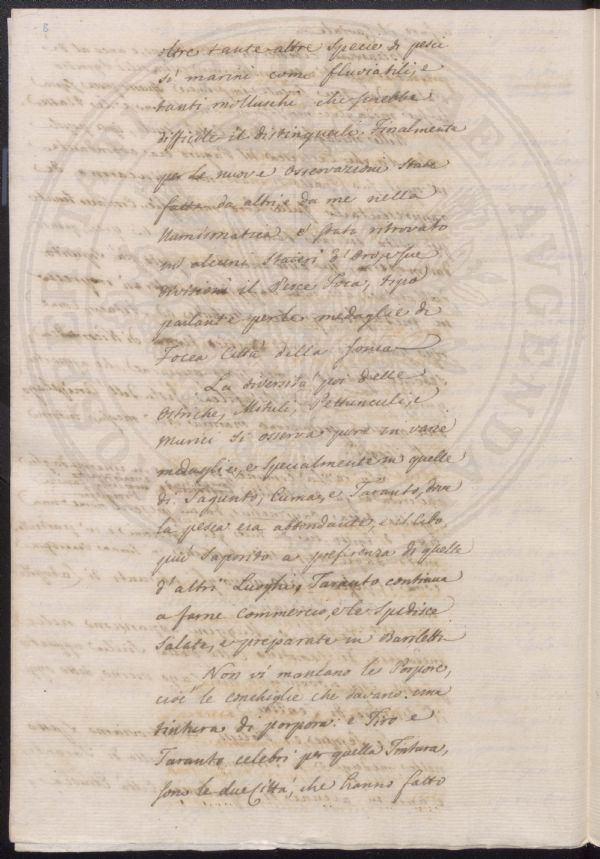 8
oltre tante altre Specie di pesci
sì marini come fluviatili, e
tanti molluschi che sarebbe
difficile il distinguerli. Finalmente
per le nuove osservazioni state
fatte da altri e da me nella
Numismatica, è stato ritrovato
in alcuni Stateri d'Oro, e sue
divisioni il Pesce Foca, tipo
parlante per le medaglie di
Focea Città della Jonia
La diversità poi delle
Ostriche, Mituli, Pettunculi, e
Murici si osserva pure in varie
medaglie, e specialmente in quelle
di Sagunto, Cuma, e Taranto, dove
la pesca era abbondante, e il cibo,
più Saporito a preferenza di quella
d'altri Luoghi, Taranto continua
a farne Commercio, e le Spedisce
Salate, e preparate in Bariletti
Non vi mancano le Porpore,
cioè le conchiglie che davano una
tintura di porpora: e Tiro e
Taranto celebri per quella Tintura,
sono le due Città, che hanno fatto